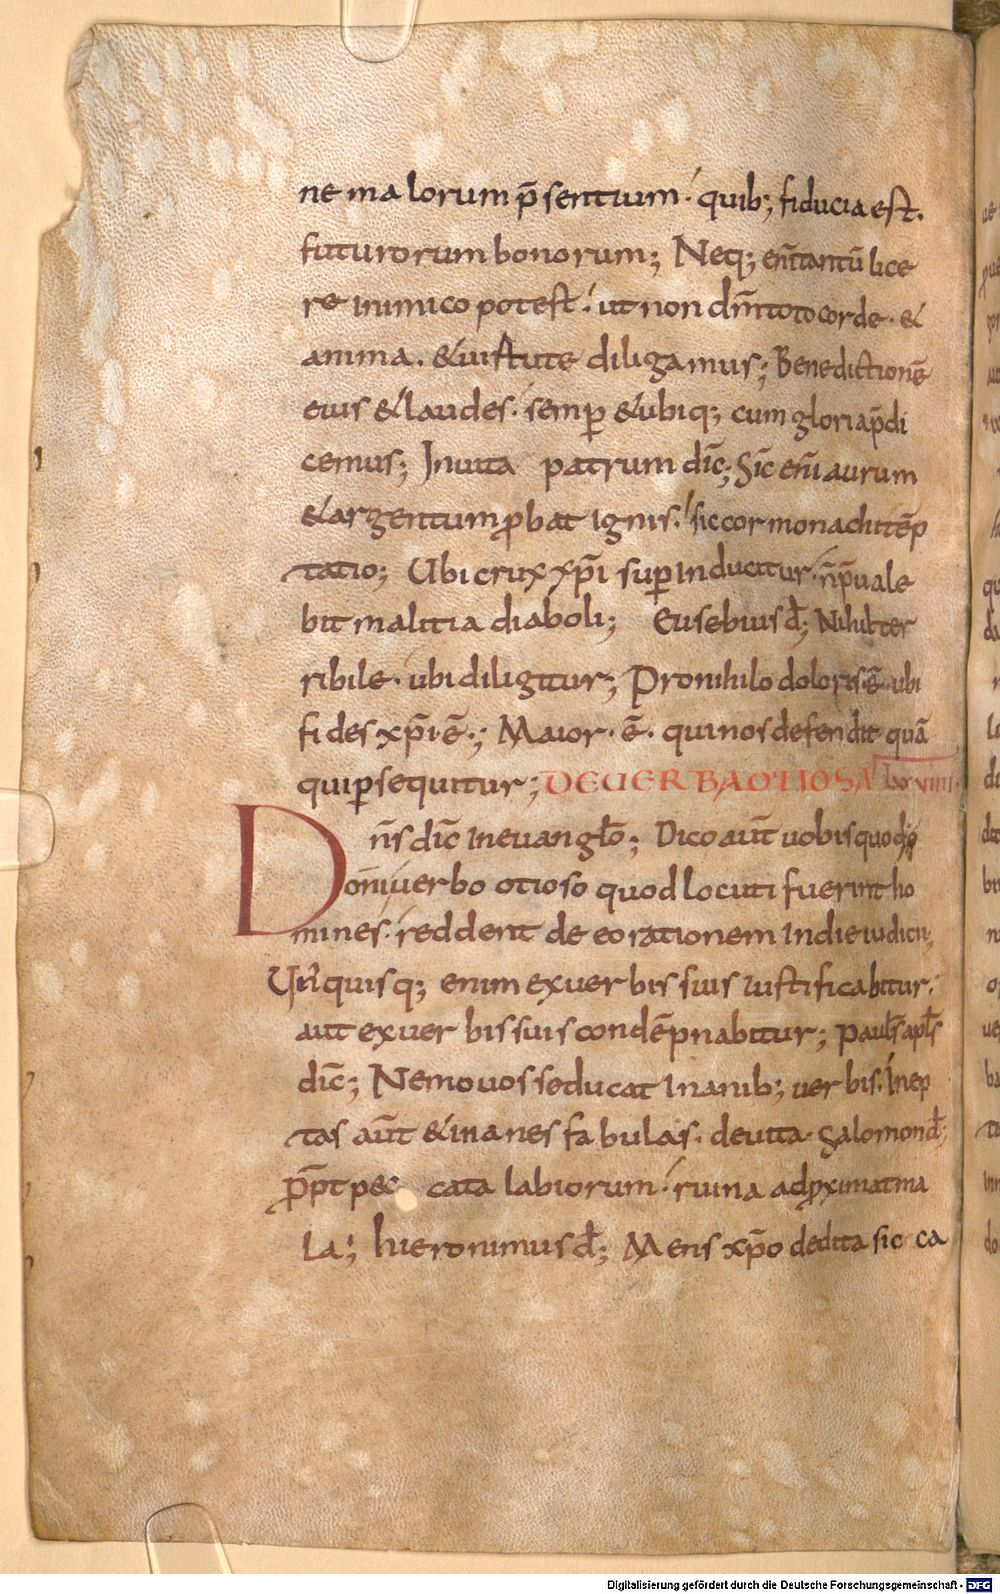 ne malorum p̄sentium· quib; fiducia est.
futurorum bonorum; Neq; eni̅ tantū lice
re inimico potest· ut non dn̄m toto corde· &
anima· & uirtute diligamus; Benedictionē
eius & laudes· semp̲ & ubiq; cum gloria p̄di
cemus; In uita patrum dic̄; Sic eni̅ aurum
& argentum ꝓbat ignis· sic cor monachi tēp
tatio; Ubi crux xp̄i sup̲inducitur· n̄ p̄uale
bit malitia diaboli; Eusebius d̄; Nihil ter
ribile· ubi diligitur; Pro nihilo doloris ē· ubi
fides xp̄i· ē·; Maior· ē· qui nos defendit quā
qui p̲sequitur; DE VERBA OTIOSA lxviiii·
Dn̄s dic̄ in euanglo̅; Dico aut̄ uobis quod
Om̄i uerbo otioso quod locuti fuerint ho
mines· reddent de eo rationem in die iudicii;
Un̄ quisq; enim ex uerbis suis iustificabitur·
aut ex uerbis suis condēpnabitur; Paul̄s apl̄s
dic̄; Nemo uos seducat inanib; uerbis· Inep
tas aut̄ & inanes fabulas· deuita· Salomon d̄;
ꝓpt̄ peccata labiorum· ruina adꝓximat ma
la; hieronimus d̄; Mens xp̄o dedita sic ca
Digitalisierung gefördert durch die Deutsche Forschungsgemeinschaft - DFG